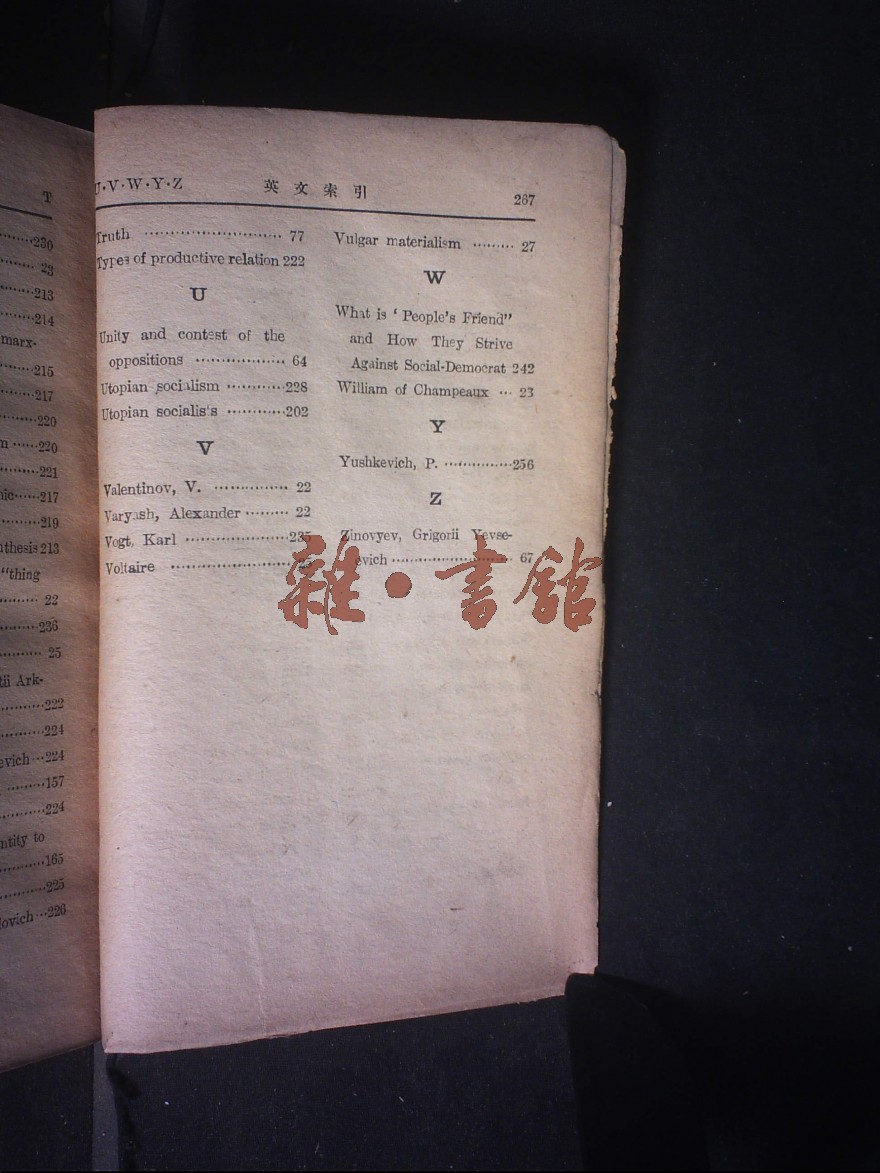 T
230
23
213
214
marx-
215
217
220
220
221
217
219
thesis 213
"thing
22
236
25
tii Ark-
222
224
evich 224
157
224
ntity to
165
225
lovich 226
U·V·W·Y·Z 英文索引 287
Truth 77
Types of productive relation 222
U
Unity and contest of the
oppositions 64
Utopian socialism 228
Utopian socialis's 202
V
Valentinov, V. 22
Varyash, Alexander 22
Vogt, Karl 235
Voltaire
Vulgar materialism 27
W
What is ' People's Friend"
and How They Strive
Against Social-Democrat 242
William of Champeaux 23
Y
Yushkevich, P. 256
Z
Zinovyev, Grigorii Yevse-
evich 67
雜·書館